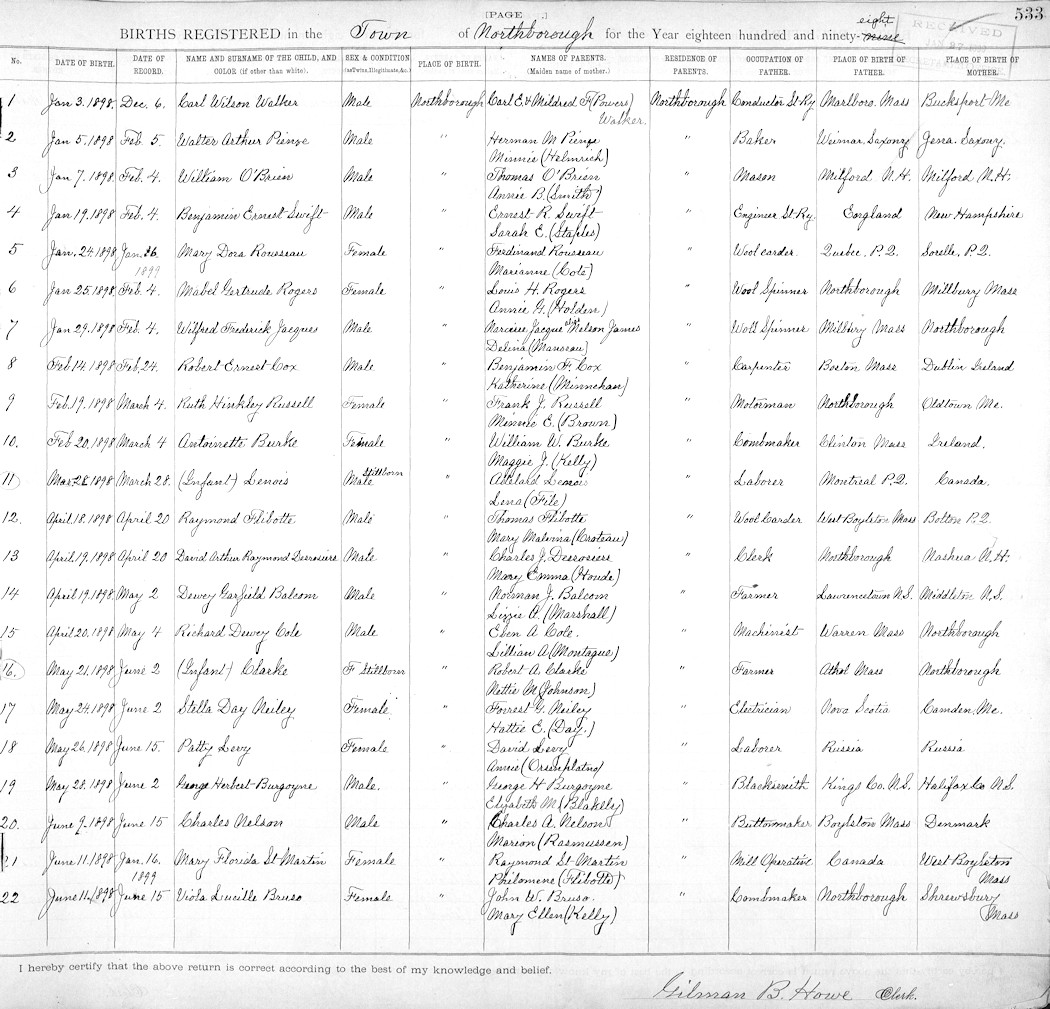 [PAGE .]
533
RECEIVED
BIRTHS REGISTERED in the Town of Northborough for the Year eighteen hundred and ninety-nine eight
No. DATE OF BIRTH. DATE OF RECORD. NAME AND SURNAME OF THE CHILD, AND COLOR (if other than white). SEX & CONDITION (as Twins, Illegitimate, &c.) PLACE OF BIRTH. NAMES OF PARENTS. (Maiden name of mother.) RESIDENCE OF PARENTS. OCCUPATION OF FATHER. PLACE OF BIRTH OF FATHER. PLACE OF BIRTH OF MOTHER.
1 Jan 3. 1898. Dec. 6. Carl Wilson Walker Male Northborough Carl E. & Mildred F (Powers) Northborough Conductor St Ry Marlboro. Mass Bucksport Me
Walker.
2 Jan 5. 1898 Feb 5. Walter Arthur Pienze Male " Herman M Pienze " Baker Weimar, Saxony Jena. Saxony.
Minnie (Helmrich)
3 Jan 7. 1898. Feb. 4. William O'Brien Male " Thomas O'Brien " Mason Milford N.H. Milford N.H.
Annie B. (Smith)
4 Jan 19. 1898 Feb. 4. Benjamin Ernest Swift Male " Ernest R. Swift " Engineer St. Ry. England New Hampshire
Sarah E. (Staples)
5 Jan. 24. 1898 Jan. 26. Mary Dora Rousseau Female " Ferdinand Rousseau " Wool carder. Quebec, P.Q. Sorelle, P.Q.
1899 Marianne (Cote)
6 Jan 25. 1898. Feb. 4. Mabel Gertrude Rogers Female " Louis H. Rogers " Wool Spinner Northborough Millbury Mass
Annie G. (Holden)
7 Jan 29. 1898 Feb. 4. Wilfred Frederick Jacques Male " Narcisse Jacque alias Nelson James " Wool Spinner Millbury Mass Northborough
Delina (Manseau)
8 Feb 14. 1898 Feb. 24. Robert Ernest Cox Male " Benjamin F. Cox " Carpenter Boston Mass Dublin Ireland
Katherine (Minnehan)
9 Feb. 19. 1898 March 4. Ruth Hinkley Russell Female " Frank J. Russell " Motorman Northborough Oldtown Me.
Minnie E. (Brown)
10. Feb 20. 1898 March 4 Antoinette Burke Female " William W. Burke " Combmaker Clinton Mass Ireland.
Maggie J. (Kelly)
11 Mar. 28 1898 March 28. (Infant) Lenois Male Stillborn " Adelard Lenois " Laborer Montreal P.Q. Canada.
Lena (File)
12. April 18. 1898 April 20 Raymond Flibotte Male " Thomas Flibotte " Wool Carder West Boylston Mass Bolton P.Q.
Mary Malvina (Croteau)
13 April 19, 1898 April 20 David Arthur Raymond Desrosiers Male " Charles J. Desrosiers " Clerk Northborough Nashua N.H.
Mary Emma (Houde)
14 April 19. 1898 May 2 Dewey Garfield Balcom Male " Norman J. Balcom " Farmer Lawrencetown N.S. Middleton N.S.
Lizzie A. (Marshall)
15 April 20. 1898 May 4 Richard Dewey Cole Male " Eben A Cole. " Machinist Warren Mass Northborough
Lillian A (Montague)
16. May 21. 1898 June 2 (Infant) Clarke F Stillborn " Robert A. Clarke " Farmer Athol Mass Northborough
Nettie M (Johnson)
17 May 24. 1898 June 2 Stella Day Neiley Female " Forrest G. Neiley " Electrician Nova Scotia Camden, Me.
Hattie E. (Day.)
18 May 26. 1898 June 15. Patty Levy Female " David Levy " Laborer Russia Russia
Annie
19 May 28. 1898 June 2 George Herbert Burgoyne Male. " George H Burgoyne " Blacksmith Kings Co. N.S. Halifax Co N.S.
Elizabeth M. (Blakeley)
20. June 9. 1898 June 15 Charles Nelson Male " Charles A. Nelson " Buttonmaker Boylston Mass Denmark
Marion (Rasmussen)
21 June 11. 1898 Jan. 16. Mary Florida St Martin Female " Raymond St Martin " Mill Operative Canada West Boylston
1899 Philomene (Flibotte) Mass
22 June 11, 1898 June 15 Viola Lucille Bruso Female " John W. Bruso. " Combmaker Northborough Shrewsbury
Mary Ellen (Kelly) Mass
I hereby certify that the above return is correct according to the best of my knowledge and belief.
Gilman B. Howe Clerk.